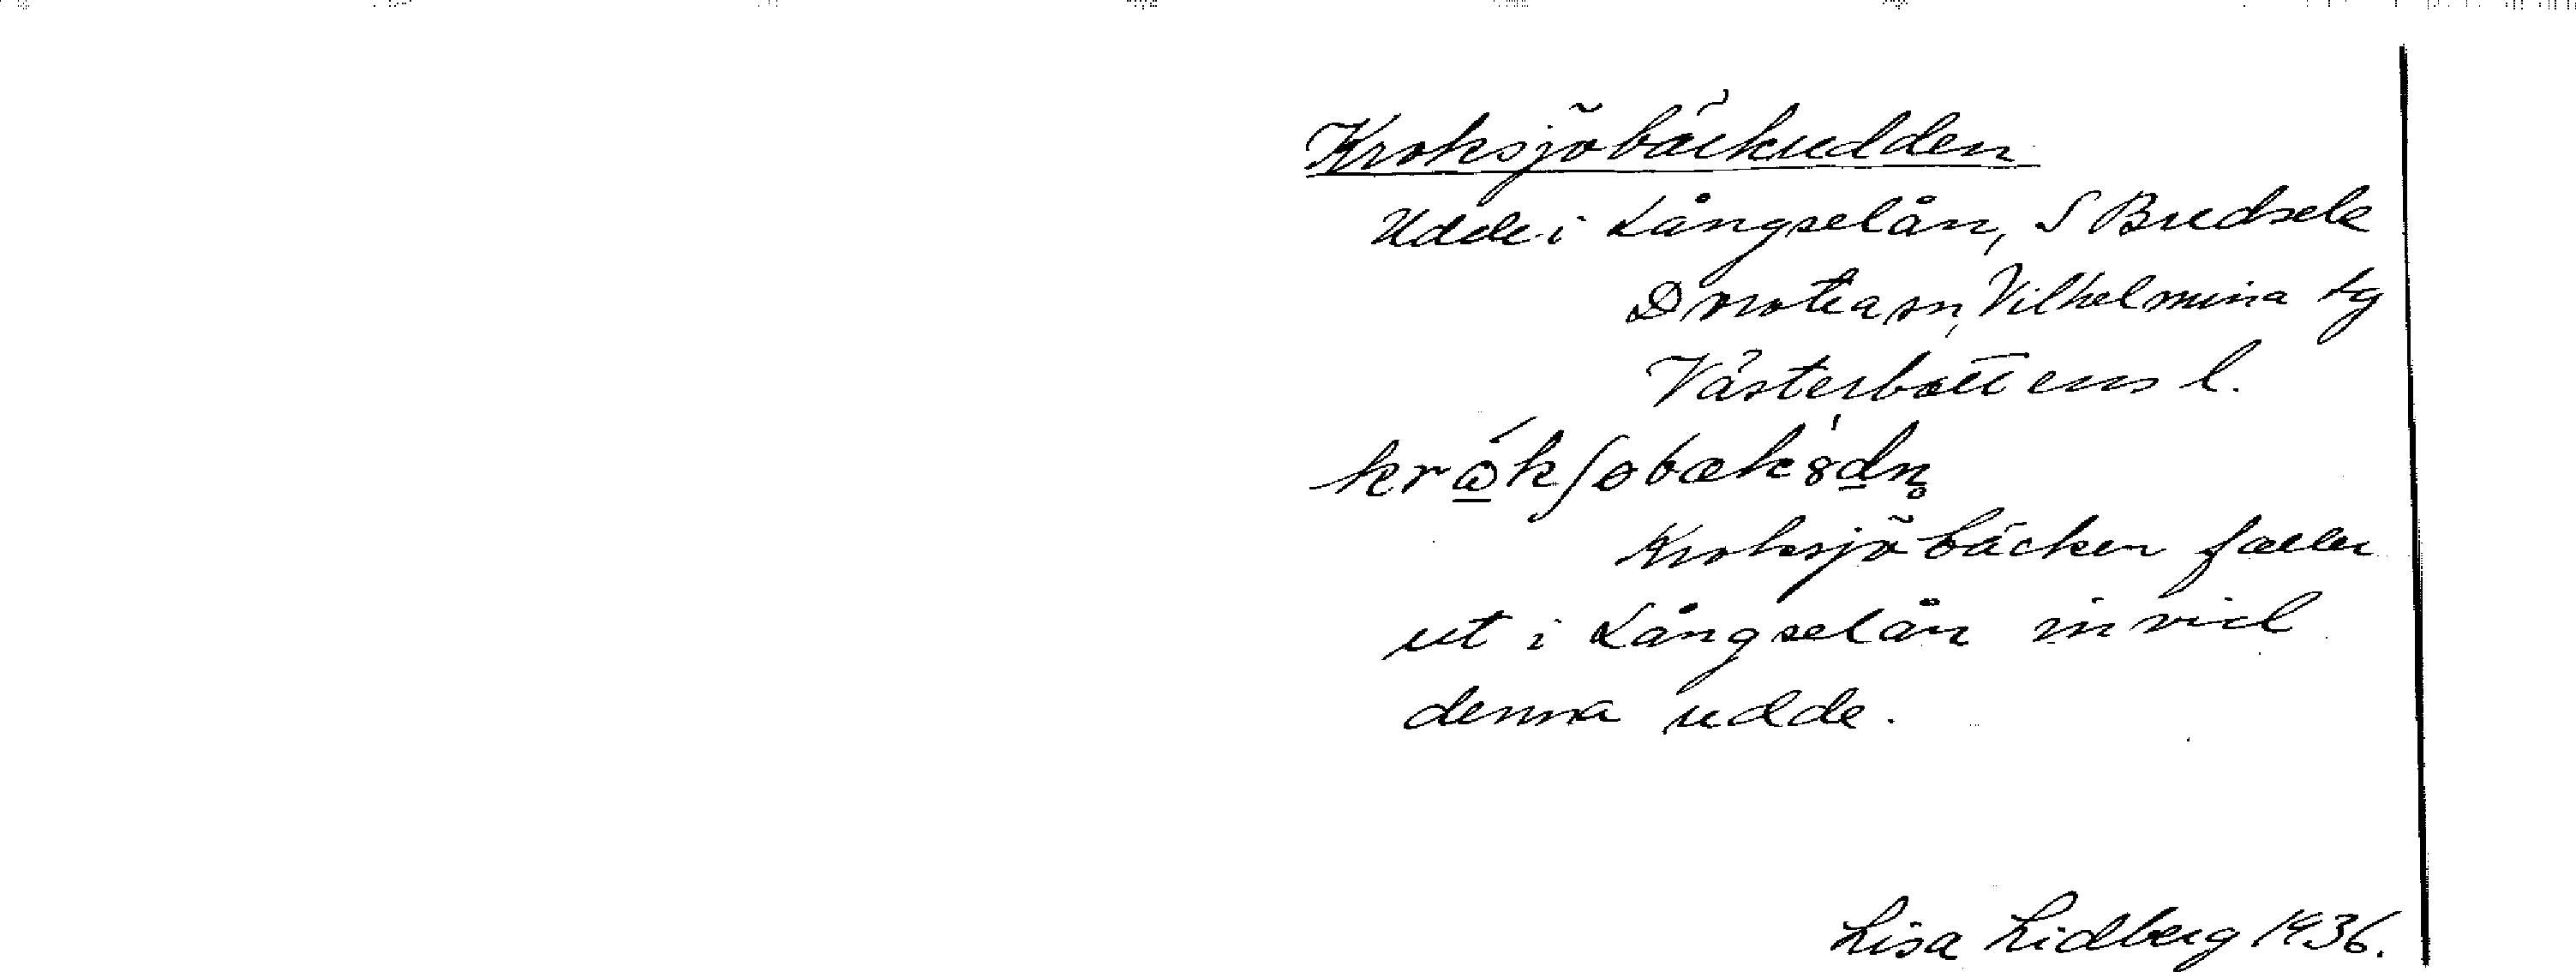 Kroksjöbäckudden
Udde i Långselån, S Bredsele
Dorotea sn, Vilhelmina tg
Västerbottens l.
krǻkʃobæk8dn̥
Kroksjöbäcken faller
ut i Långselån invid
denna udde.
Lisa Lidberg 1936.